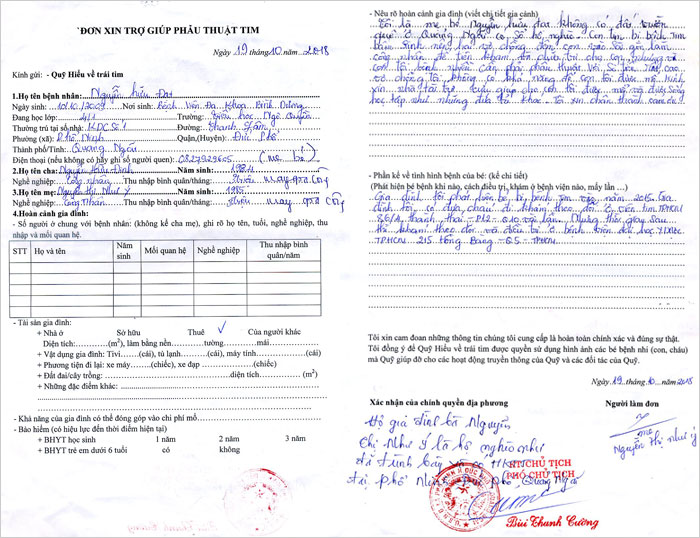 ĐƠN XIN TRỢ GIÚP PHẪU THUẬT TIM
Ngày 19 tháng 10 năm 2018
Kính gửi: - Quỹ Hiểu về trái tim
1.Họ tên bệnh nhân: Nguyễn Hữu Đạt
Ngày sinh: 10/10/2009 Nơi sinh: Bệnh Viện Đa Khoa Bình Dương
Đang học lớp: 4/1 Trường: Tiểu học Ngô Quyền
Thường trú tại số nhà: KDC Số 1 Đường: Thanh Lâm
Phường (xã) Phổ Ninh Quận,(Huyện): Đức Phổ
Thành phố/Tỉnh: Quảng Ngãi
Điện thoại (nếu không có hãy ghi số người quen): 0827929605 (mẹ bé)
2.Họ tên cha: Nguyễn Hữu Định Năm sinh: 1984
Nghề nghiệp: Công nhân Thu nhập bình quân/năm: may gia công
3.Họ tên mẹ: Nguyễn Thị Như Ý Năm sinh: 1985
Nghề nghiệp: Công Nhân Thu nhập bình quân/năm: may gia công
4.Hoàn cảnh gia đình:
- Số người ở chung với bệnh nhân: (không kể cha mẹ), ghi rõ họ tên, tuổi, nghề nghiệp, thu
nhập và mối quan hệ.
STT Họ và tên Năm sinh Mối quan hệ Nghề nghiệp Thu nhập bình quân/năm
- Tài sản gia đình:
+ Nhà ở Sở hữu Thuê ✓ Của người khác
Diện tích:............(m²), làm bằng nền............tường............mái............
+ Vật dụng gia đình: Tivi......(cái), tủ lạnh......(cái), máy tính............(cái)
+ Phương tiện đi lại: xe máy......(chiếc), xe đạp............(chiếc)
+ Đất đai/cây trồng:............diện tích............(m²)
+ Những đặc điểm khác:............
- Khả năng của gia đình có thể đóng góp vào chi phí mổ............
- Bảo hiểm (có hiệu lực đến thời điểm hiện tại)
+ BHYT học sinh 1 năm 2 năm 3 năm
+ BHYT trẻ em dưới 6 tuổi có không
- Nêu rõ hoàn cảnh gia đình (viết chi tiết gia cảnh)
Tôi là mẹ bé Nguyễn Hữu Đạt không có đất vườn
quê ở Quảng Ngãi có sổ hộ nghèo con tôi bị bệnh Tim
bẩm sinh nên hai vợ chồng đem con vào Sài Gòn làm
công nhân để tiện khám và điều trị cho con nhưng
con tôi bệnh cần phải phẫu thuật
vợ chồng tôi không có khả năng để con tôi được mổ. Kính
xin nhà tài trợ giúp cho con tôi được mổ và được sống
học tập như những đứa trẻ khác. Tôi xin chân thành cảm ơn!
- Phần kể về tình hình bệnh của bé: (kể chi tiết)
(Phát hiện bé bệnh khi nào, cách điều trị, khám ở bệnh viện nào, mấy lần …)
Gia đình tôi phát hiện bé bị bệnh tim vào năm 2015. Gia
đình tôi có đưa cháu đi khám theo dõi ở viện tim TPHCM
thành thái - P12 - Q10
thì khám theo dõi và điều trị ở bệnh viện đại học Y Dược
TPHCM 215 Hồng Bàng - Q5 - TPHCM
Tôi xin cam đoan những thông tin chúng tôi cung cấp là hoàn toàn chính xác và đúng sự thật.
Tôi đồng ý để Quỹ Hiểu về trái tim được quyền sử dụng hình ảnh các bé bệnh nhi (con, cháu)
mà Quỹ giúp đỡ cho các hoạt động truyền thông của Quỹ và các đối tác của Quỹ.
Ngày 19 tháng 10 năm 2018
Xác nhận của chính quyền địa phương Người làm đơn
Hộ gia đình bà Nguyễn
Thị Như Ý là hộ nghèo như
đã trình bày
tại Phổ Ninh, Đức Phổ, Quảng Ngãi
mẹ
Nguyễn Thị Như Ý
KT.CHỦ TỊCH
PHÓ CHỦ TỊCH
Bùi Thanh Cường